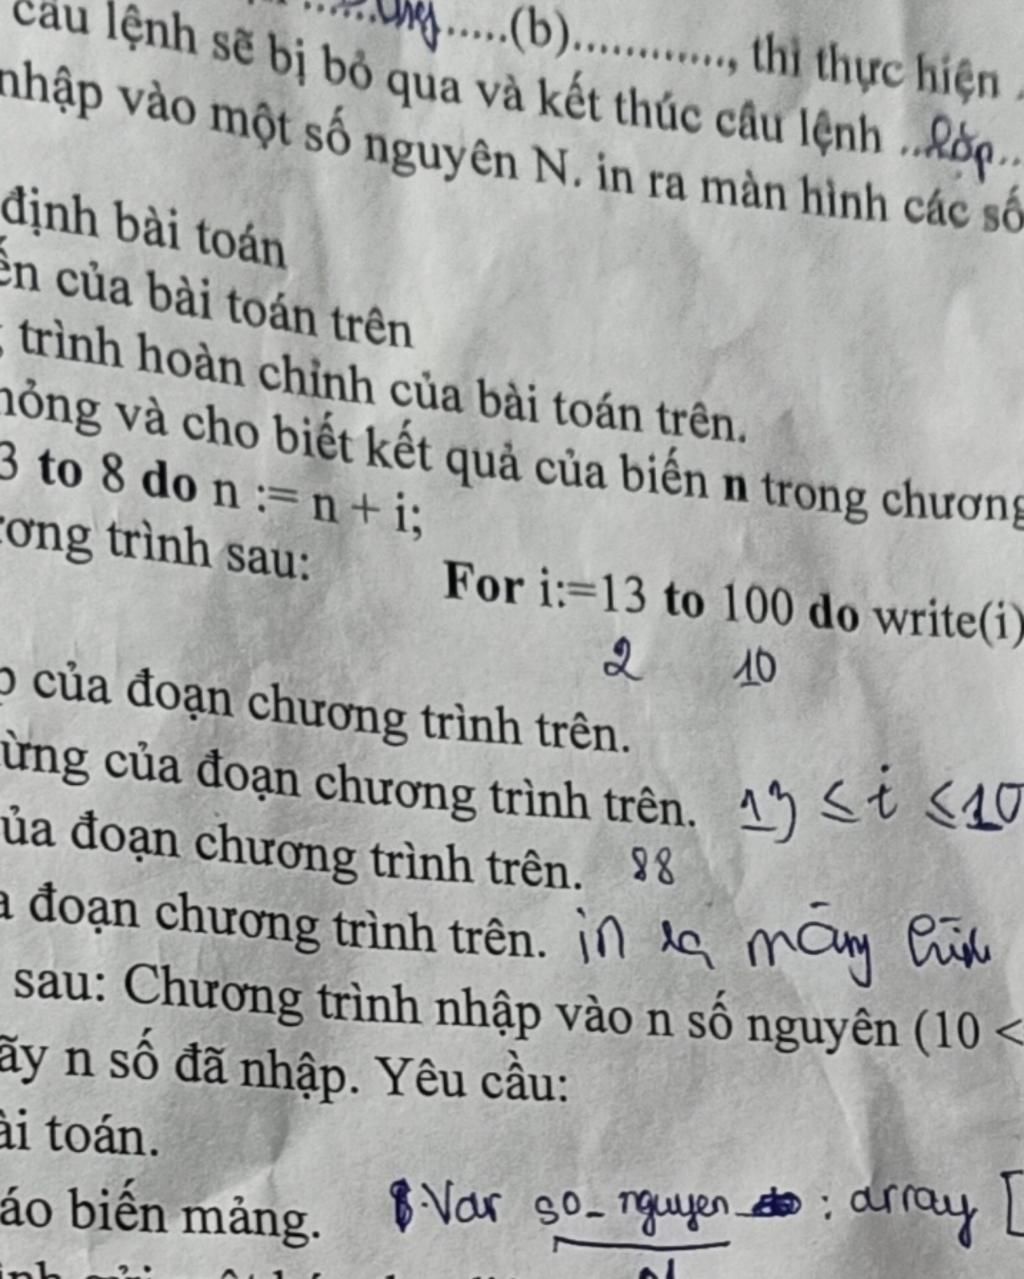 ......ứng.....(b)............., thì thực hiện
câu lệnh sẽ bị bỏ qua và kết thúc câu lệnh ..lặp...
nhập vào một số nguyên N. in ra màn hình các số
định bài toán
ến của bài toán trên
trình hoàn chỉnh của bài toán trên.
hỏng và cho biết kết quả của biến n trong chương
3 to 8 do n := n + i;
ơng trình sau:
For i:=13 to 100 do write(i)
2 10
p của đoạn chương trình trên.
ừng của đoạn chương trình trên. 13 ≤ i ≤ 10
ủa đoạn chương trình trên. 88
a đoạn chương trình trên. in ra
sau: Chương trình nhập vào n số nguyên (10 <
ãy n số đã nhập. Yêu cầu:
ài toán.
áo biến mảng. Var so_nguyen : array [